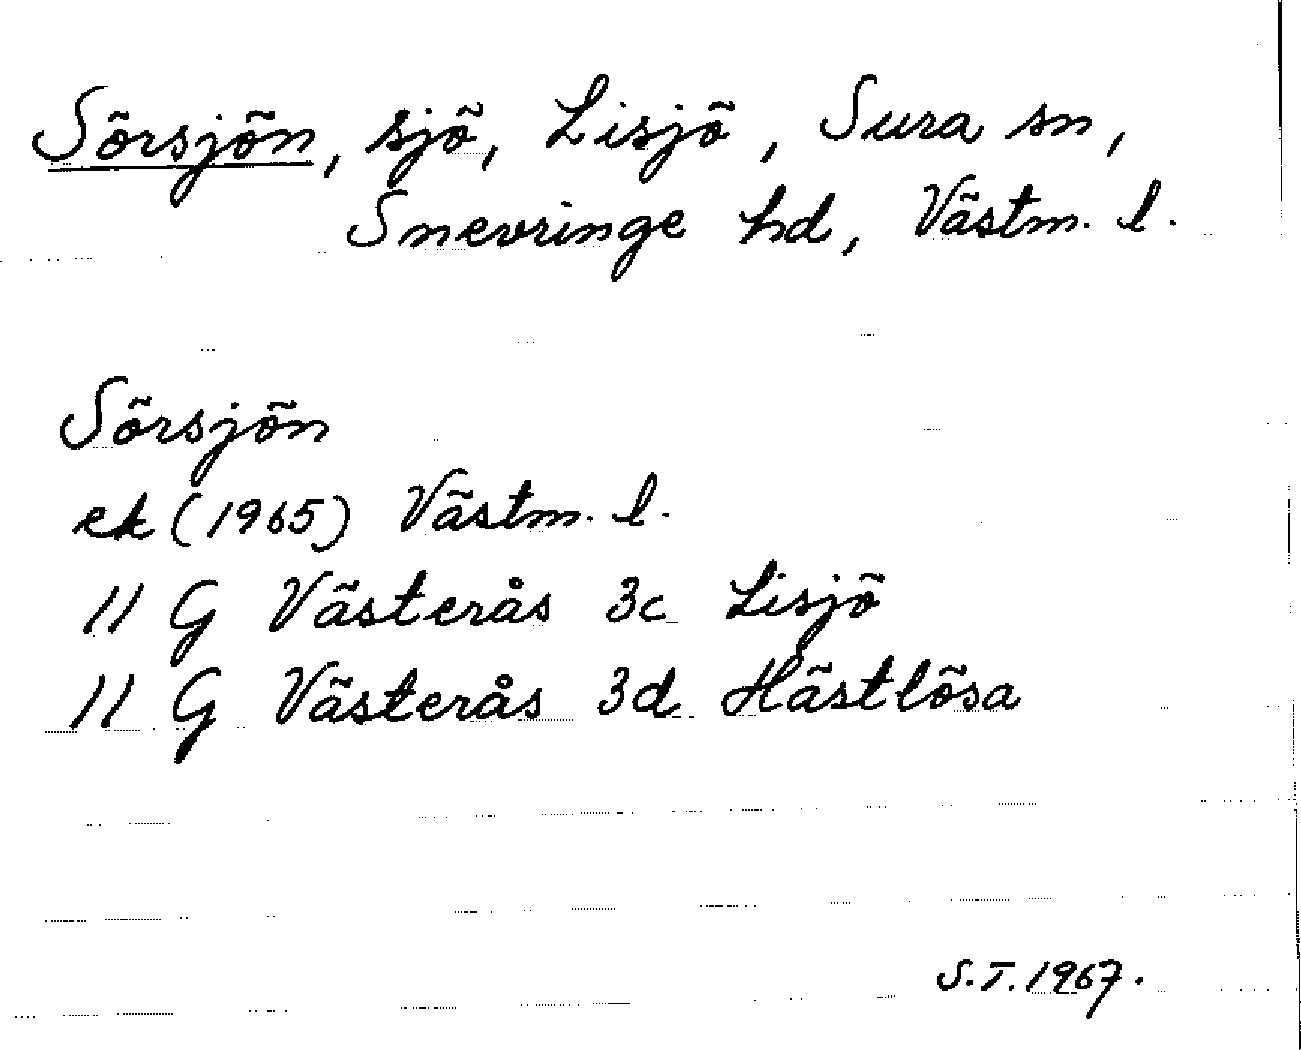 Sörsjön, sjö, Lisjö, Sura sn,
Snevringe hd, Västm. l.
Sörsjön
ek (1965) Västm. l.
11 G Västerås 3c Lisjö
11 G Västerås 3d Hästlösa
S.T. 1967.